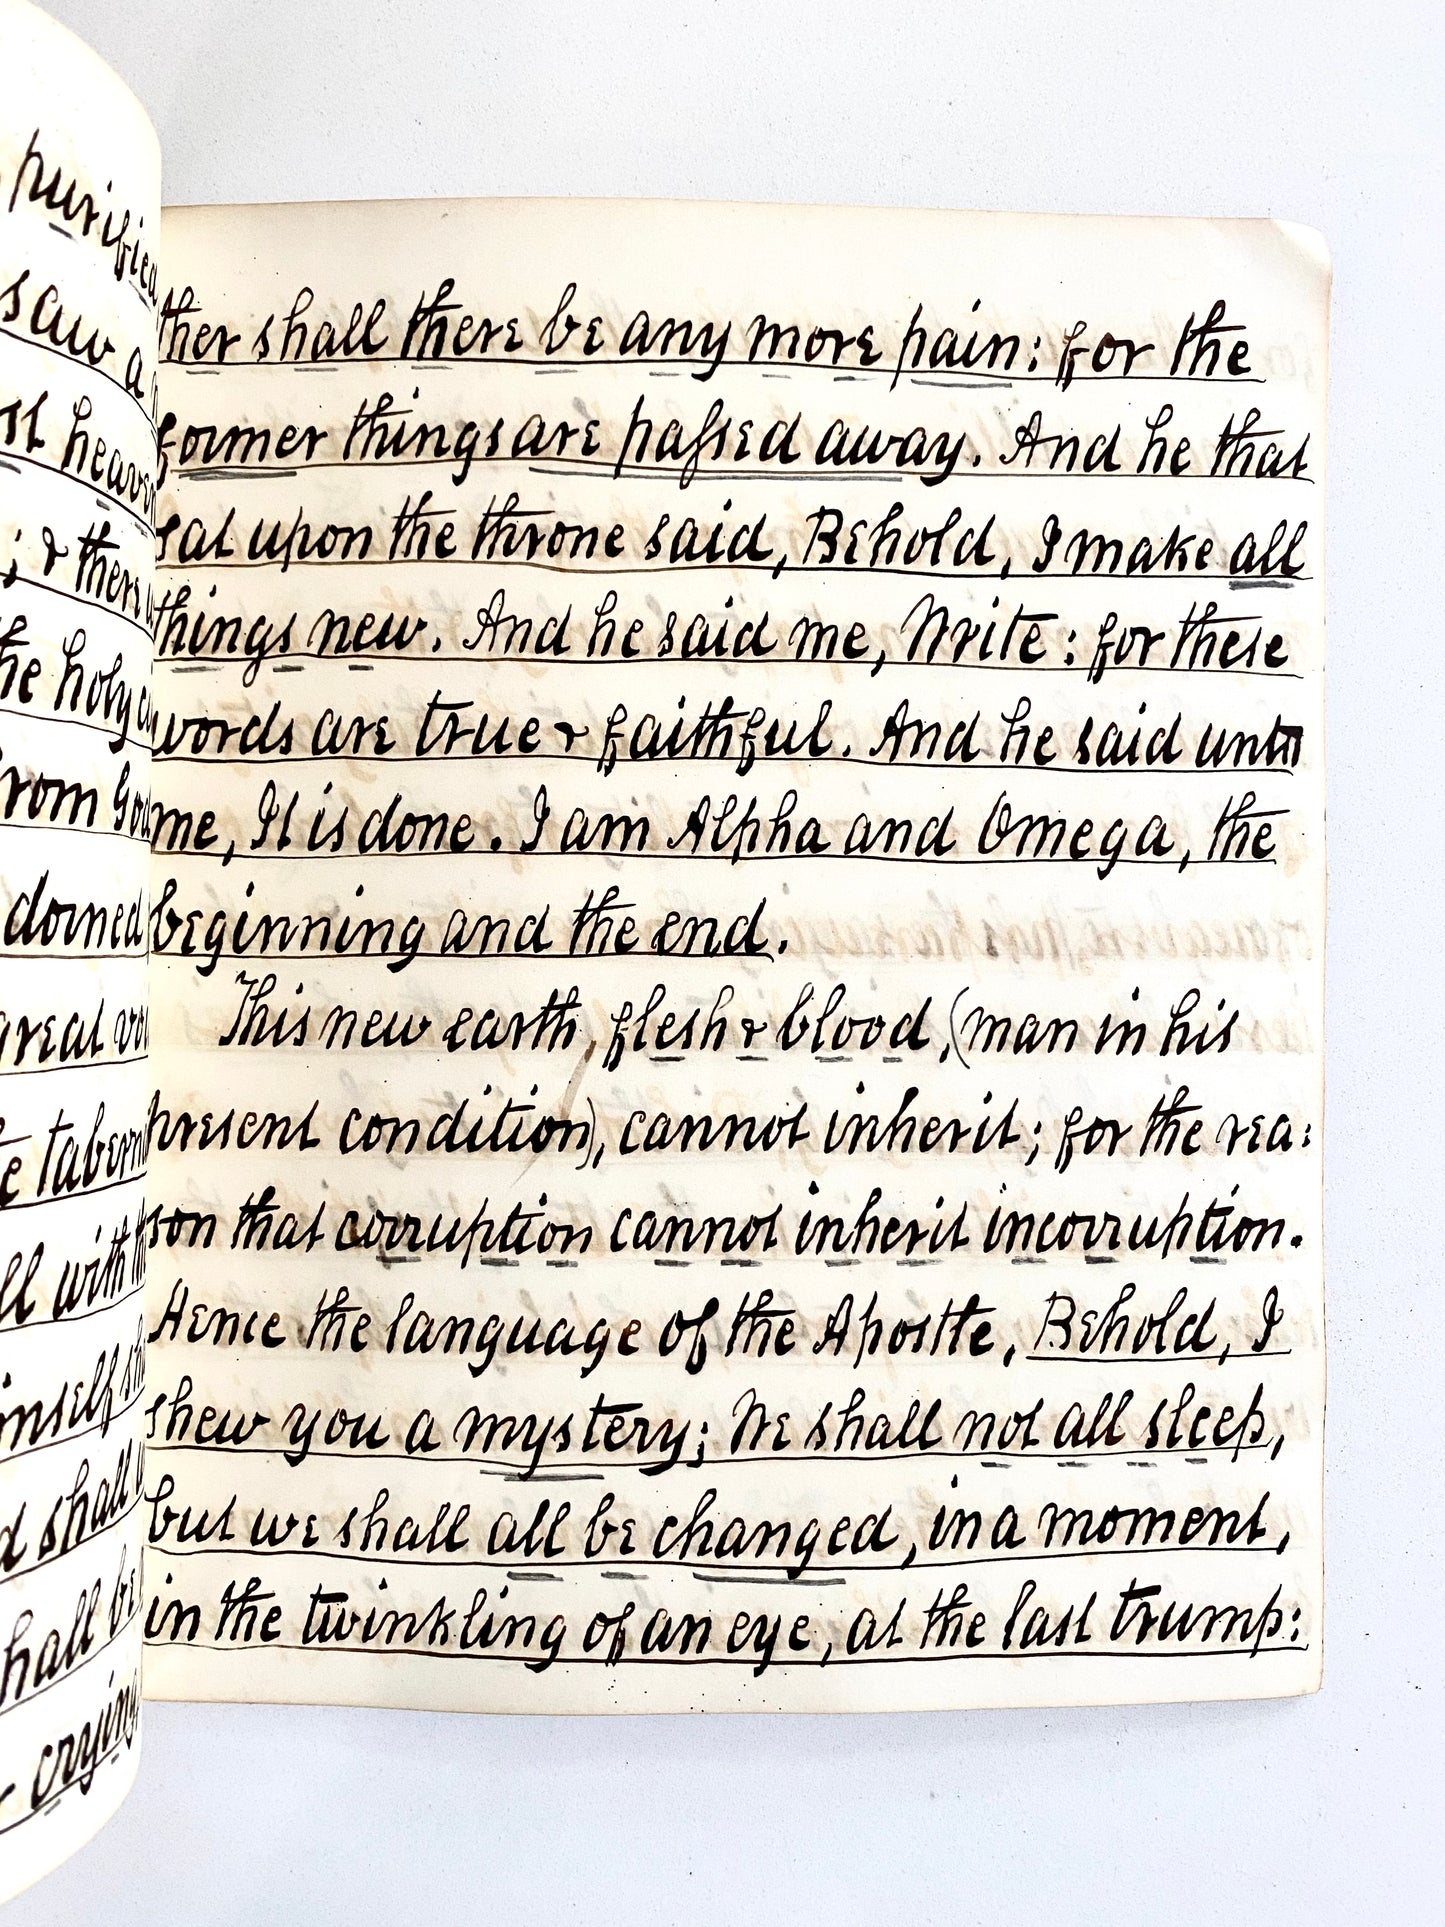 purified
saw a
st heaven
; & there
the holy
from God
dorned
great
tabern
ll with
imself
d shall
hall be
crying
ther shall there be any more pain: for the
former things are paſsed away. And he that
sat upon the throne said, Behold, I make all
things new. And he said me, Write: for these
words are true & faithful. And he said unto
me, It is done. I am Alpha and Omega, the
beginning and the end.
This new earth, flesh & blood, (man in his
present condition), cannot inherit; for the rea:
son that corruption cannot inherit incorruption.
Hence the language of the Apostle, Behold, I
shew you a mystery; We shall not all sleep,
but we shall all be changed, in a moment,
in the twinkling of an eye, at the last trump: